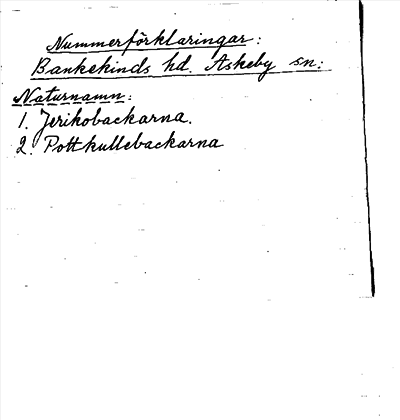 Nummerförklaringar:
Bankekinds hd. Askeby sn:
Naturnamn:
1. Jerikobackarna.
2. Pottkullebackarna